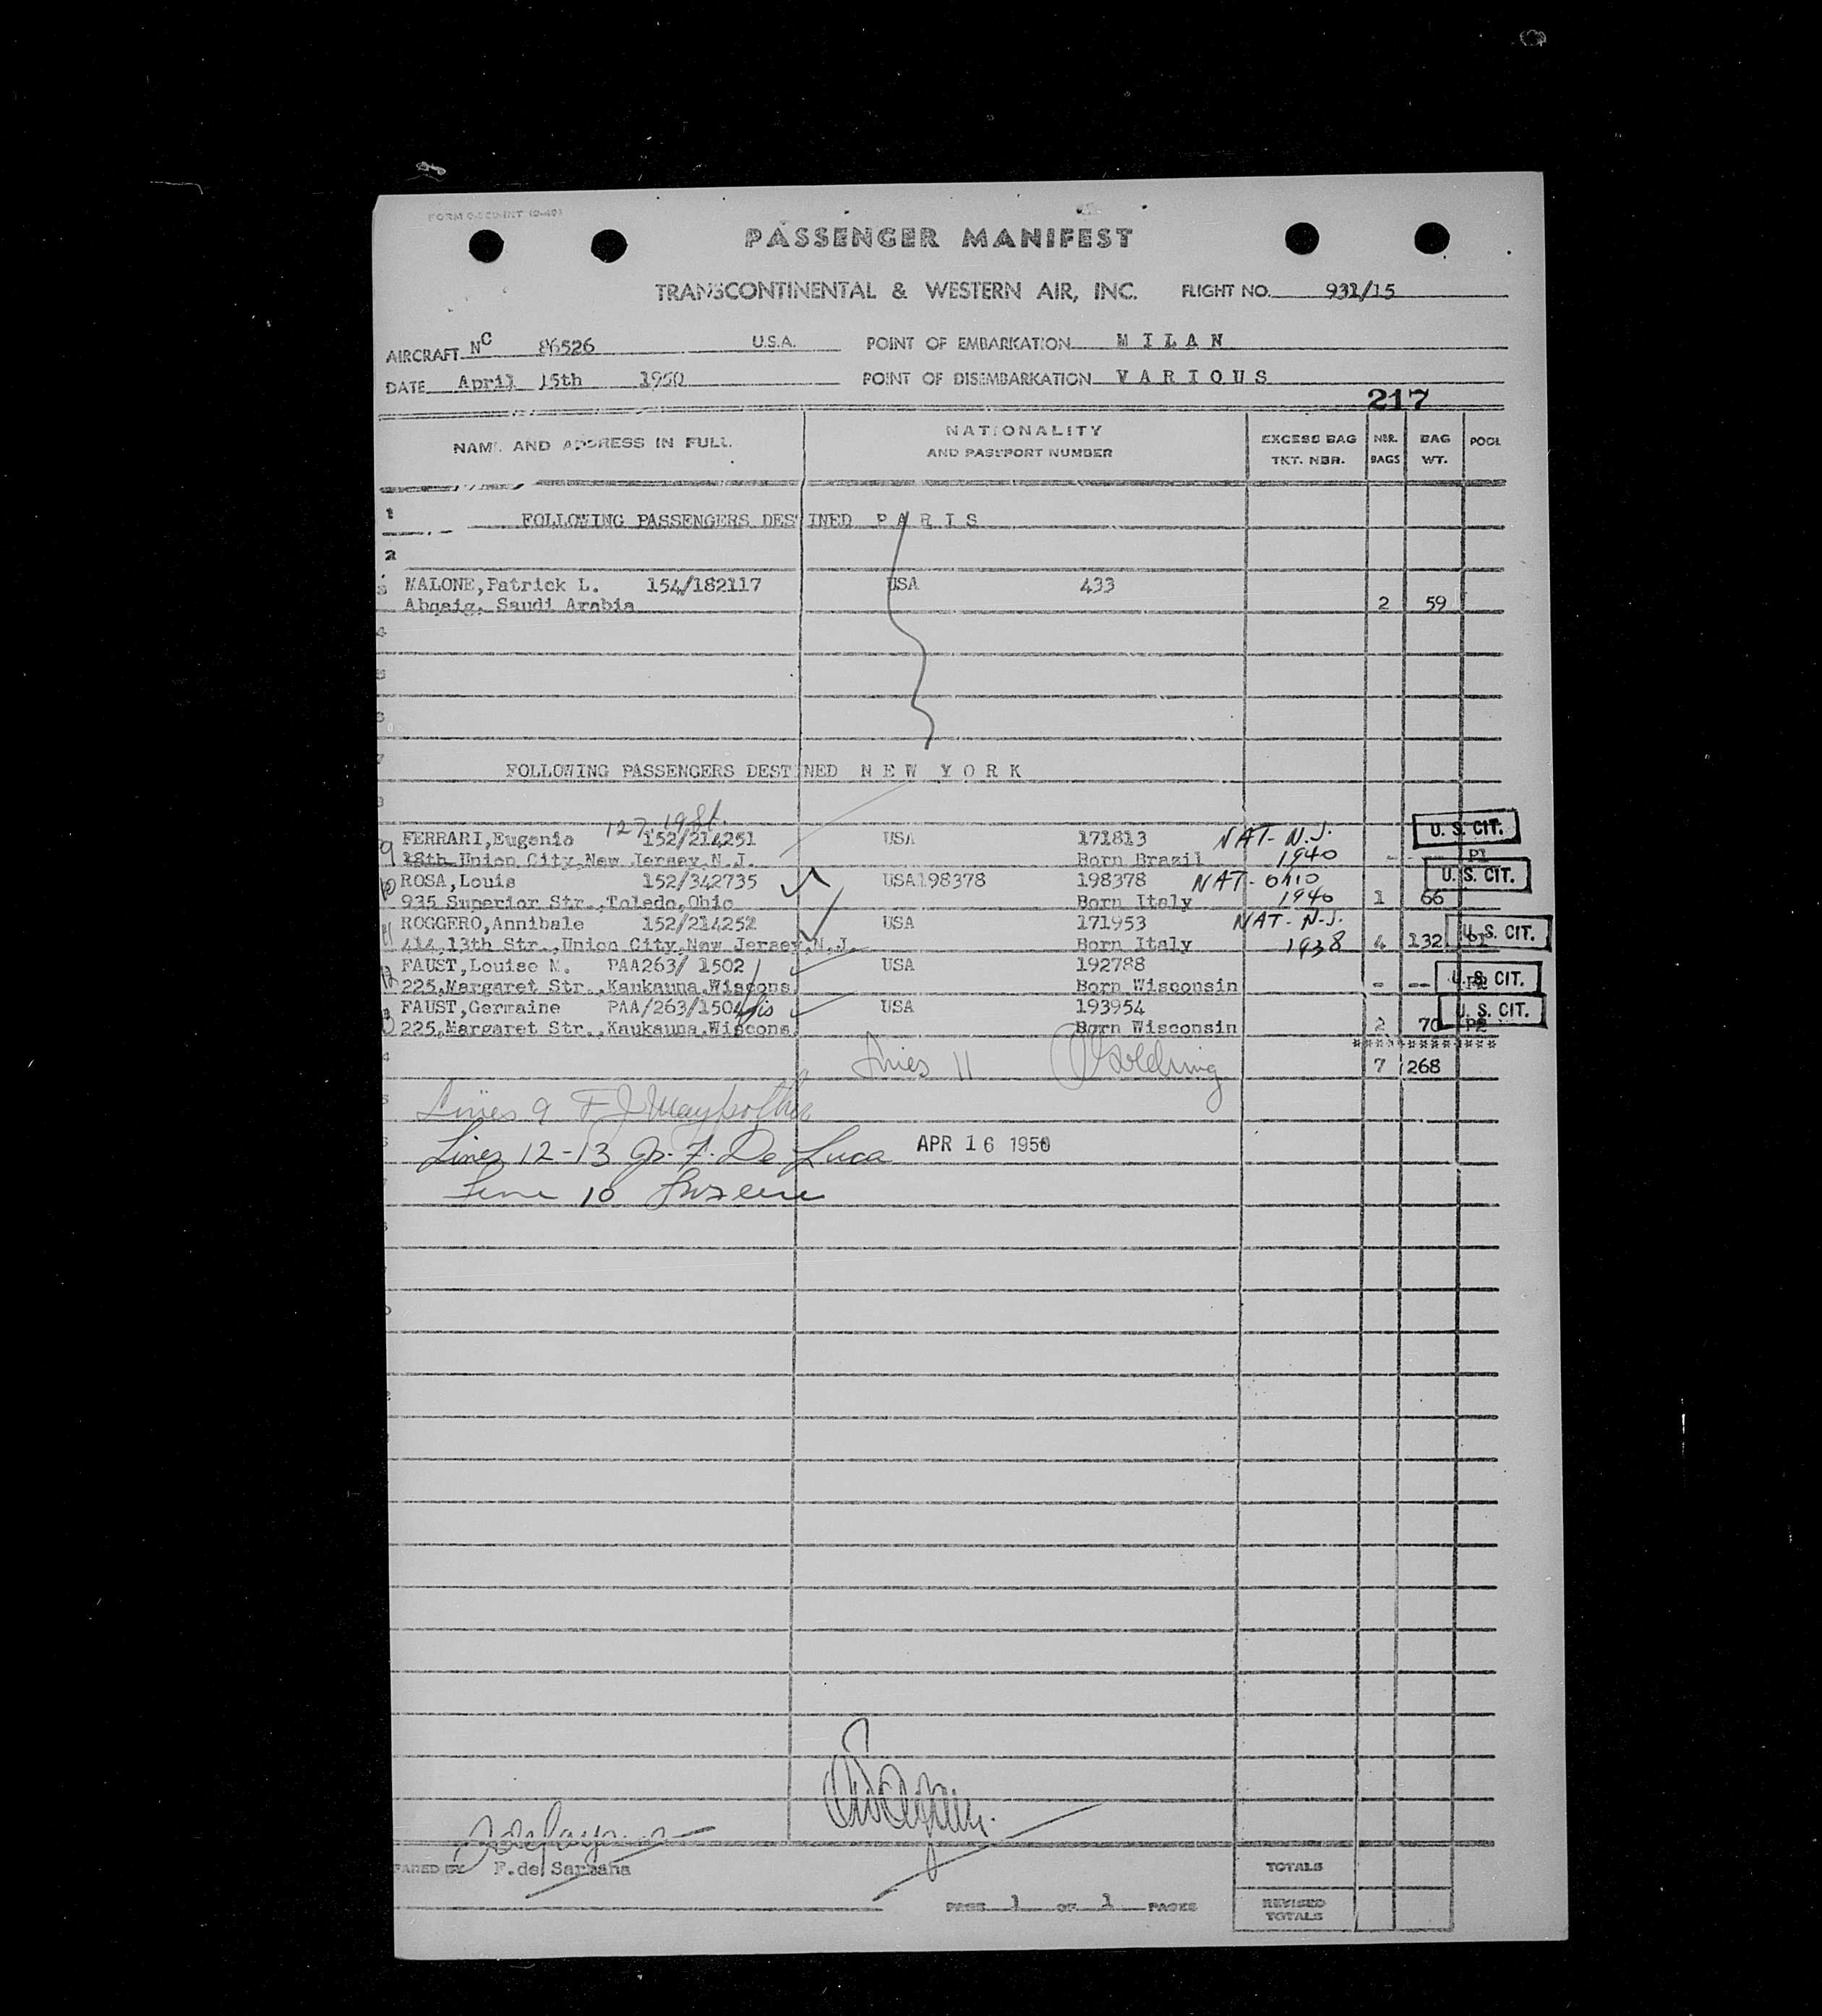 PASSENGER MANIFEST
TRANSCONTINENTAL & WESTERN AIR, INC. FLIGHT NO. 931/15
AIRCRAFT NC 86526 U.S.A. POINT OF EMBARKATION M I L A N
DATE April 15th 1950 POINT OF DISEMBARKATION V A R I O U S
217
NAME AND ADDRESS IN FULL NATIONALITY AND PASSPORT NUMBER EXCESS BAG TKT. NBR. NBR. BAGS BAG WT. POOL
1 FOLLOWING PASSENGERS DESTINED P A R I S
2
3 MALONE,Patrick L. 154/182117 USA 433
Abqaig, Saudi Arabia 2 59
FOLLOWING PASSENGERS DESTINED N E W Y O R K
127, 19 St.
9 FERRARI,Eugenio 152/214251 USA 171813 NAT- N.J. U. S. CIT.
18th Union City,New Jersey,N.J. Born Brazil 1940 - -- P1
10 ROSA,Louis 152/342735 USA198378 198378 NAT- OHIO U. S. CIT.
935 Superior Str.,Toledo,Ohio Born Italy 1940 1 66
11 ROGGERO,Annibale 152/214252 USA 171953 NAT- N-J. U. S. CIT.
414,13th Str.,Union City,New Jersey,N.J. Born Italy 1938 4 132 P1
12 FAUST,Louise M. PAA263/ 1502 USA 192788 U. S. CIT.
225,Margaret Str.,Kaukauna,Wiscons. Born Wisconsin - -- P2
13 FAUST,Germaine PAA/263/1504 USA 193954 U. S. CIT.
225,Margaret Str.,Kaukauna,Wiscons. Born Wisconsin 2 70 P2
7 268
Lines 11
Lines 9
Lines 12-13 Jr. F. De Luca APR 16 1950
Line 10
F.de
PAGE 1 OF 1 PAGES
TOTALS
REVISED TOTALS